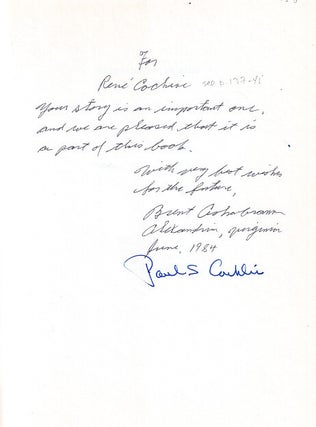 For
René Cochine see p. 137-41
Your story is an important one,
and we are pleased that it is
a part of this book.
With very best wishes
for the future,
Brent Ashabranner
Alexandria, Virginia
June, 1984
Paul S Conklin